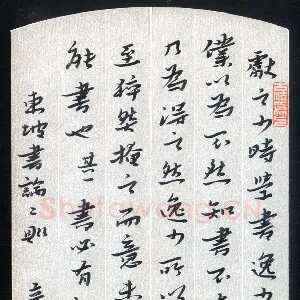 獻之少時學書逸少
僕以為不然知書不在
乃為得之然逸少所以
至猝然掩之而意未
能書也其書必有
東坡書論二則